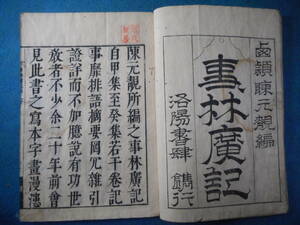 西穎陳元靚編
事林廣記
洛陽書肆 鐫行
陳元靚所編之事林廣記
自甲集至癸集若干卷記
事靡排語摘要罔冗雜引
證詳而不加臆說有功世
教者不少余二十年前曾
見此書之寫本字畫漫漶